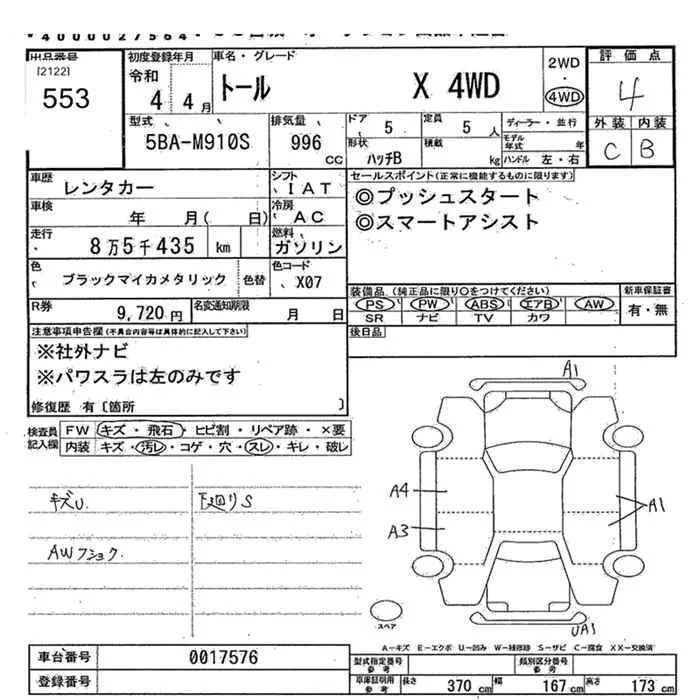 4000027564
出品番号
[2122]
553
初度登録年月
令和
4 4月
車名・グレード
トール X 4WD
2WD
・
4WD
評価点
4
外装 内装
C B
型式
5BA-M910S
排気量
996 CC
ドア 5
定員 5 人
形状
ハッチB
積載 kg
ディーラー・並行
モデル年式 年
ハンドル 左・右
車歴
レンタカー
シフト
IAT
車検
年 月( 日)
冷房
AC
走行
8万5千435 km
燃料
ガソリン
色
ブラックマイカメタリック
色替
色コード
X07
R券
9,720円
名変通知期限
月 日
セールスポイント(正常に機能するものに限ります)
◎プッシュスタート
◎スマートアシスト
装備品(純正品に限り○をつけてください)
PS PW ABS エアB AW
SR ナビ TV カワ
新車保証書
有・無
後日品
注意事項申告欄(不具合内容等は具体的に記入して下さい)
※社外ナビ
※パワスラは左のみです
修復歴 有〔箇所 〕
検査員記入欄
FW キズ・飛石・ヒビ割・リペア跡・×要
内装 キズ・汚レ・コゲ・穴・スレ・キレ・破レ
キズU.
下廻りS
AWフショク.
A1
A4
A3
A1
UA1
スペア
A-キズ E-エクボ U-凹み W-補修跡 S-サビ C-腐食 XX-交換済
車台番号 0017576
登録番号
型式指定番号 参考
類別区分番号 参考
車庫証明用 参考
長さ 370 cm
幅 167 cm
高さ 173 cm